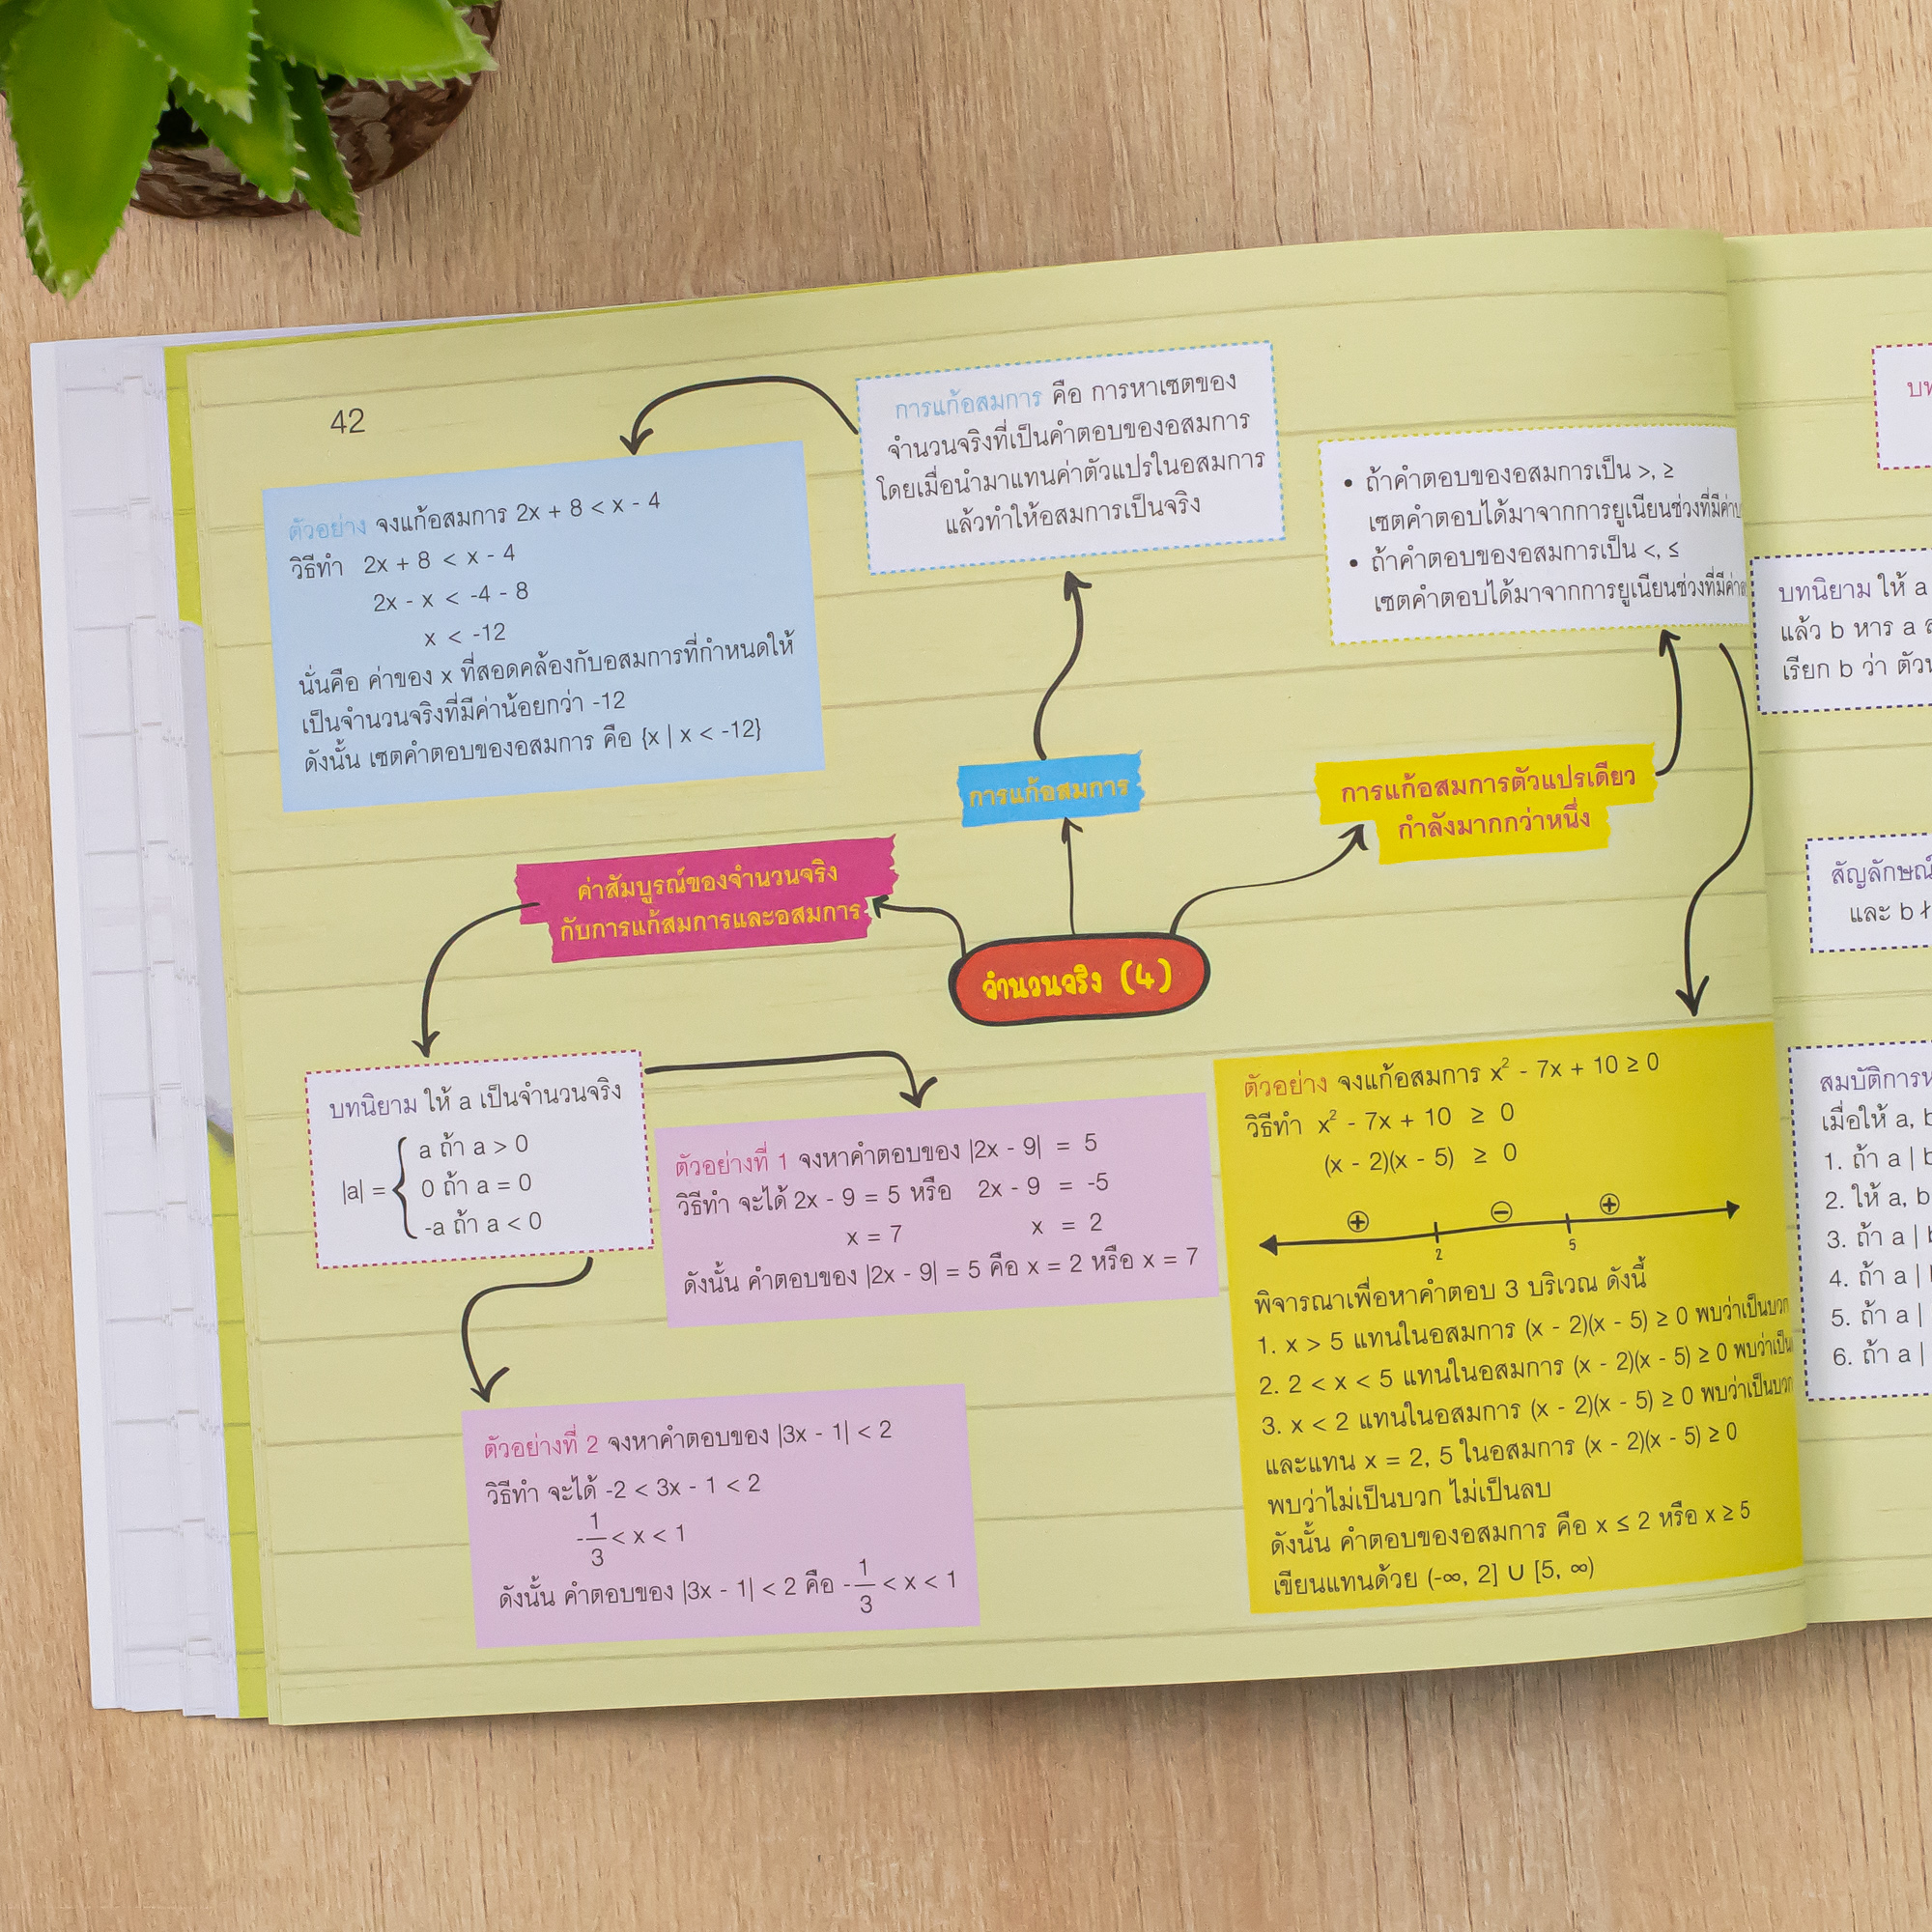 42
การแก้อสมการ คือ การหาเซตของ
จำนวนจริงที่เป็นคำตอบของอสมการ
โดยเมื่อนำมาแทนค่าตัวแปรในอสมการ
แล้วทำให้อสมการเป็นจริง
ตัวอย่าง จงแก้อสมการ 2x + 8 < x - 4
วิธีทำ 2x + 8 < x - 4
2x - x < -4 - 8
x < -12
นั่นคือ ค่าของ x ที่สอดคล้องกับอสมการที่กำหนดให้
เป็นจำนวนจริงที่มีค่าน้อยกว่า -12
ดังนั้น เซตคำตอบของอสมการ คือ {x | x < -12}
• ถ้าคำตอบของอสมการเป็น >, ≥
เซตคำตอบได้มาจากการยูเนียนช่วงที่มี
• ถ้าคำตอบของอสมการเป็น <, ≤
เซตคำตอบได้มาจากการยูเนียนช่วงที่มี
การแก้อสมการ
การแก้อสมการตัวแปรเดียว
กำลังมากกว่าหนึ่ง
ค่าสัมบูรณ์ของจำนวนจริง
กับการแก้สมการและอสมการ
จำนวนจริง (4)
บทนิยาม ให้ a เป็นจำนวนจริง
|a| = { a ถ้า a > 0
0 ถ้า a = 0
-a ถ้า a < 0
ตัวอย่างที่ 1 จงหาคำตอบของ |2x - 9| = 5
วิธีทำ จะได้ 2x - 9 = 5 หรือ 2x - 9 = -5
x = 7 x = 2
ดังนั้น คำตอบของ |2x - 9| = 5 คือ x = 2 หรือ x = 7
ตัวอย่างที่ 2 จงหาคำตอบของ |3x - 1| < 2
วิธีทำ จะได้ -2 < 3x - 1 < 2
-1/3 < x < 1
ดังนั้น คำตอบของ |3x - 1| < 2 คือ -1/3 < x < 1
ตัวอย่าง จงแก้อสมการ x² - 7x + 10 ≥ 0
วิธีทำ x² - 7x + 10 ≥ 0
(x - 2)(x - 5) ≥ 0
+ − +
2 5
พิจารณาเพื่อหาคำตอบ 3 บริเวณ ดังนี้
1. x > 5 แทนในอสมการ (x - 2)(x - 5) ≥ 0 พบว่าเป็นบวก
2. 2 < x < 5 แทนในอสมการ (x - 2)(x - 5) ≥ 0 พบว่าเป็น
3. x < 2 แทนในอสมการ (x - 2)(x - 5) ≥ 0 พบว่าเป็นบวก
และแทน x = 2, 5 ในอสมการ (x - 2)(x - 5) ≥ 0
พบว่าไม่เป็นบวก ไม่เป็นลบ
ดังนั้น คำตอบของอสมการ คือ x ≤ 2 หรือ x ≥ 5
เขียนแทนด้วย (-∞, 2] ∪ [5, ∞)
บทนิยาม ให้ a
แล้ว b หาร a
เรียก b ว่า
สัญลักษณ์
และ b ∤
สมบัติการ
เมื่อให้ a, b
1. ถ้า a | b
2. ให้ a, b
3. ถ้า a |
4. ถ้า a |
5. ถ้า a |
6. ถ้า a |